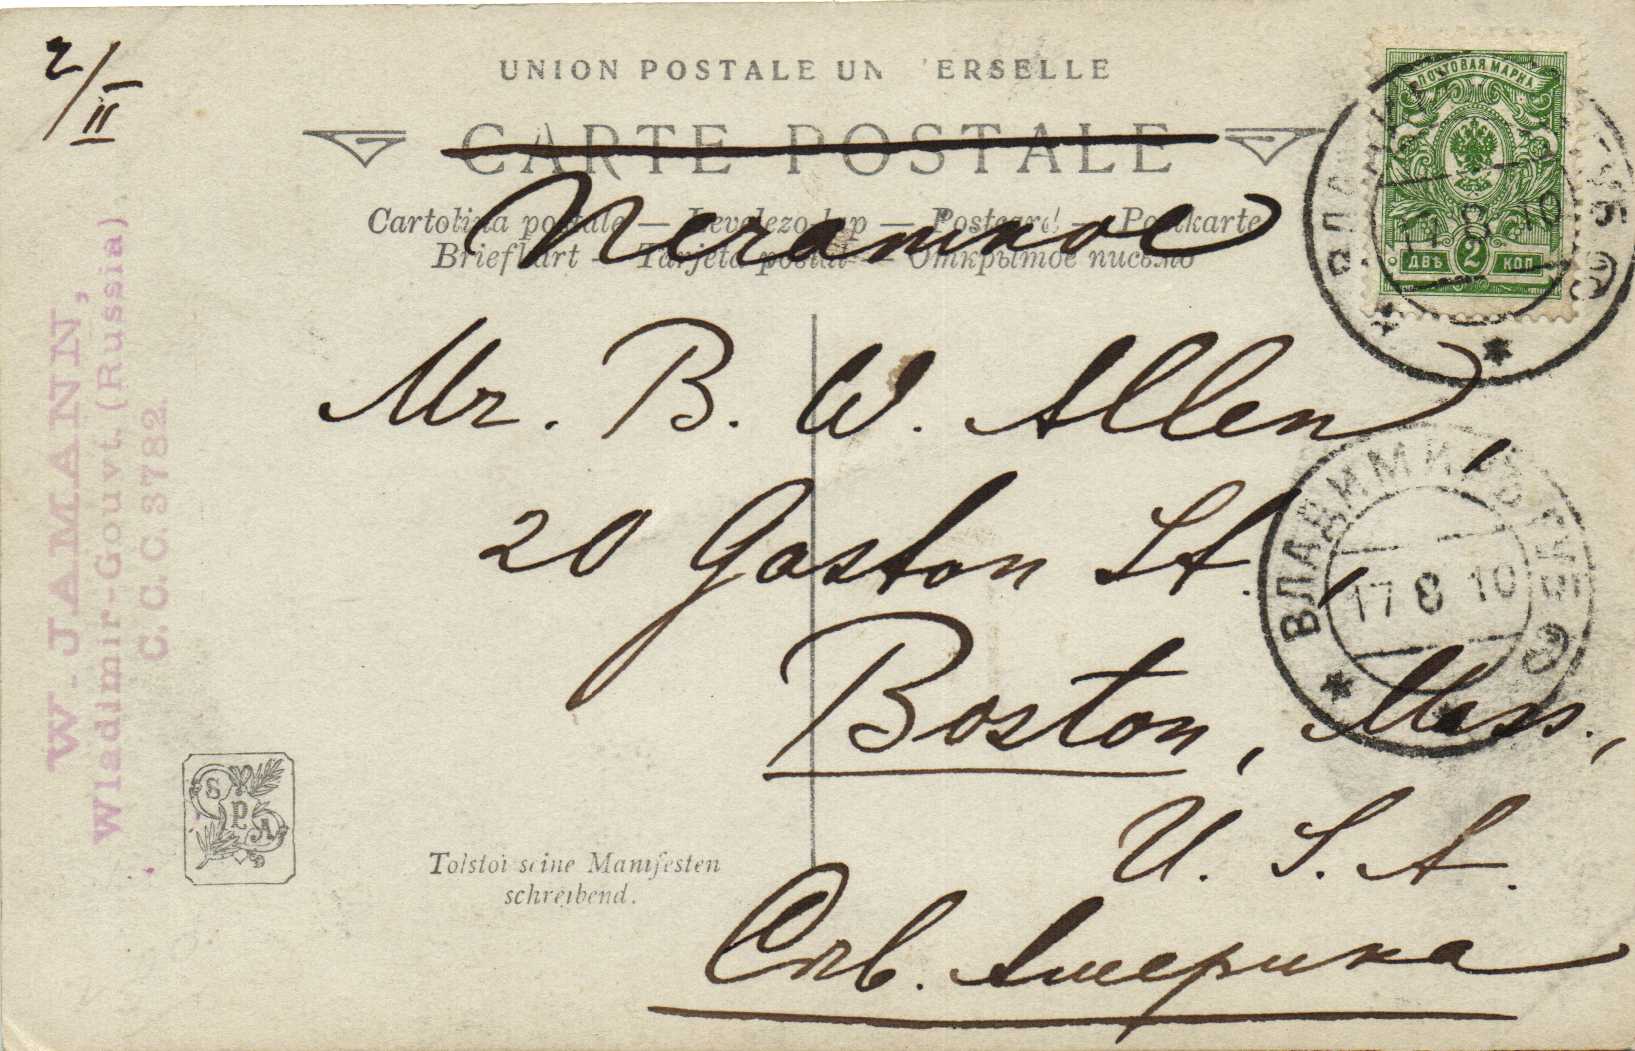 2/II
UNION POSTALE UN ERSELLE
CARTE POSTALE
Cartolina postale — Levelezo lap — Postcard — Postkarte
Briefkart — Tarjeta postal — Открытое письмо
Печатное
ПОЧТОВАЯ МАРКА
ДВѢ 2 КОП
17 8 10
Mr. B. W. Allen,
20 Gaston St.,
Boston, Mass.,
U. S. A.
Спв. Америка
ВЛАДИМИРЪ ГУБ
17 8 10
W. JAMANN,
Wladimir-Gouvt. (Russia)
C. C. C. 3782.
S P A
Tolstoi seine Manifesten
schreibend.